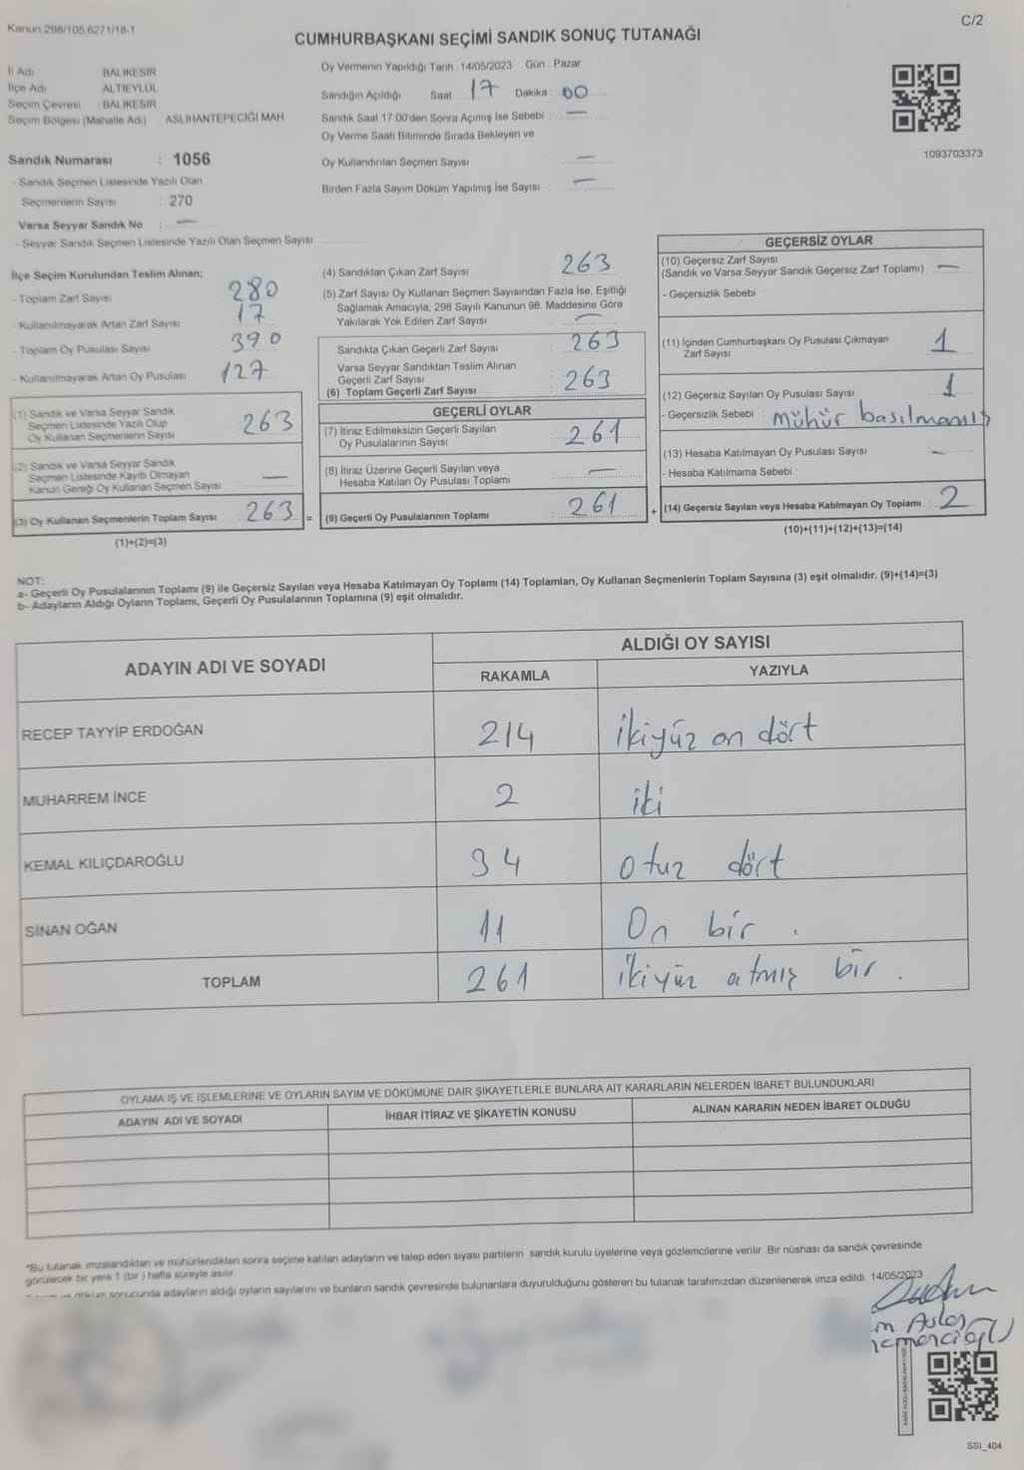 Kanun:298/105,6271/18-1
C/2
CUMHURBAŞKANI SEÇİMİ SANDIK SONUÇ TUTANAĞI
İl Adı : BALIKESİR
İlçe Adı : ALTIEYLÜL
Seçim Çevresi : BALIKESİR
Seçim Bölgesi (Mahalle Adı) : ASLIHANTEPECİĞİ MAH.
Sandık Numarası : 1056
- Sandık Seçmen Listesinde Yazılı Olan
Seçmenlerin Sayısı : 270
Varsa Seyyar Sandık No : —
- Seyyar Sandık Seçmen Listesinde Yazılı Olan Seçmen Sayısı
Oy Vermenin Yapıldığı Tarih : 14/05/2023 Gün : Pazar
Sandığın Açıldığı Saat 17 Dakika 00
Sandık Saat 17:00'den Sonra Açılmış İse Sebebi : —
Oy Verme Saati Bitiminde Sırada Bekleyen ve
Oy Kullandırılan Seçmen Sayısı —
Birden Fazla Sayım Döküm Yapılmış İse Sayısı : —
1093703373
İlçe Seçim Kurulundan Teslim Alınan;
- Toplam Zarf Sayısı 280
- Kullanılmayarak Artan Zarf Sayısı 17
- Toplam Oy Pusulası Sayısı 390
- Kullanılmayarak Artan Oy Pusulası 127
(1) Sandık ve Varsa Seyyar Sandık
Seçmen Listesinde Yazılı Olup
Oy Kullanan Seçmenlerin Sayısı 263
(2) Sandık ve Varsa Seyyar Sandık
Seçmen Listesinde Kayıtlı Olmayan
Kanun Gereği Oy Kullanan Seçmen Sayısı —
(3) Oy Kullanan Seçmenlerin Toplam Sayısı 263 =
(1)+(2)=(3)
(4) Sandıktan Çıkan Zarf Sayısı 263
(5) Zarf Sayısı Oy Kullanan Seçmen Sayısından Fazla İse, Eşitliği
Sağlamak Amacıyla; 298 Sayılı Kanunun 98. Maddesine Göre
Yakılarak Yok Edilen Zarf Sayısı —
Sandıkta Çıkan Geçerli Zarf Sayısı : 263
Varsa Seyyar Sandıktan Teslim Alınan
Geçerli Zarf Sayısı
(6) Toplam Geçerli Zarf Sayısı : 263
GEÇERLİ OYLAR
(7) İtiraz Edilmeksizin Geçerli Sayılan
Oy Pusulalarının Sayısı : 261
(8) İtiraz Üzerine Geçerli Sayılan veya
Hesaba Katılan Oy Pusulası Toplamı —
(9) Geçerli Oy Pusulalarının Toplamı : 261 +
GEÇERSİZ OYLAR
(10) Geçersiz Zarf Sayısı
(Sandık ve Varsa Seyyar Sandık Geçersiz Zarf Toplamı) —
- Geçersizlik Sebebi :
(11) İçinden Cumhurbaşkanı Oy Pusulası Çıkmayan
Zarf Sayısı 1
(12) Geçersiz Sayılan Oy Pusulası Sayısı 1
- Geçersizlik Sebebi : mühür basılmamış
(13) Hesaba Katılmayan Oy Pusulası Sayısı —
- Hesaba Katılmama Sebebi :
(14) Geçersiz Sayılan veya Hesaba Katılmayan Oy Toplamı : 2
(10)+(11)+(12)+(13)=(14)
NOT:
a- Geçerli Oy Pusulalarının Toplamı (9) ile Geçersiz Sayılan veya Hesaba Katılmayan Oy Toplamı (14) Toplamları, Oy Kullanan Seçmenlerin Toplam Sayısına (3) eşit olmalıdır. (9)+(14)=(3)
b- Adayların Aldığı Oyların Toplamı, Geçerli Oy Pusulalarının Toplamına (9) eşit olmalıdır.
ADAYIN ADI VE SOYADI
ALDIĞI OY SAYISI
RAKAMLA YAZIYLA
RECEP TAYYİP ERDOĞAN 214 ikiyüz on dört
MUHARREM İNCE 2 iki
KEMAL KILIÇDAROĞLU 34 otuz dört
SİNAN OĞAN 11 On bir .
TOPLAM 261 ikiyüz atmış bir .
OYLAMA İŞ VE İŞLEMLERİNE VE OYLARIN SAYIM VE DÖKÜMÜNE DAİR ŞİKAYETLERLE BUNLARA AİT KARARLARIN NELERDEN İBARET BULUNDUKLARI
ADAYIN ADI VE SOYADI İHBAR İTİRAZ VE ŞİKAYETİN KONUSU ALINAN KARARIN NEDEN İBARET OLDUĞU
*Bu tutanak imzalandıktan ve mühürlendikten sonra seçime katılan adayların ve talep eden siyasi partilerin sandık kurulu üyelerine veya gözlemcilerine verilir. Bir nüshası da sandık çevresinde
görülecek bir yere 1 (bir) hafta süreyle asılır.
sonucunda adayların aldığı oyların sayılarını ve bunların sandık çevresinde bulunanlara duyurulduğunu gösteren bu tutanak tarafımızdan düzenlenerek imza edildi. 14/05/2023
SSI_404